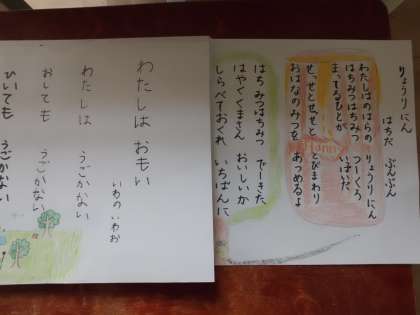 りょうり にん
はちだ ぶんぶん
わたしはのはらの りょうり にん
はちみつはちみつ つーくろ
まってるひとが いっぱいだ
せっせとせっせと とびまわり
おはなのみつを あつめるよ
はちみつはちみつ でーきた
はやくくまさん おいしいか
しらべておくれ いちばんに
Honey
わたしは おもい
いわの いわお
わたしは うごかない
おしても うごかない
ひいても うごかない